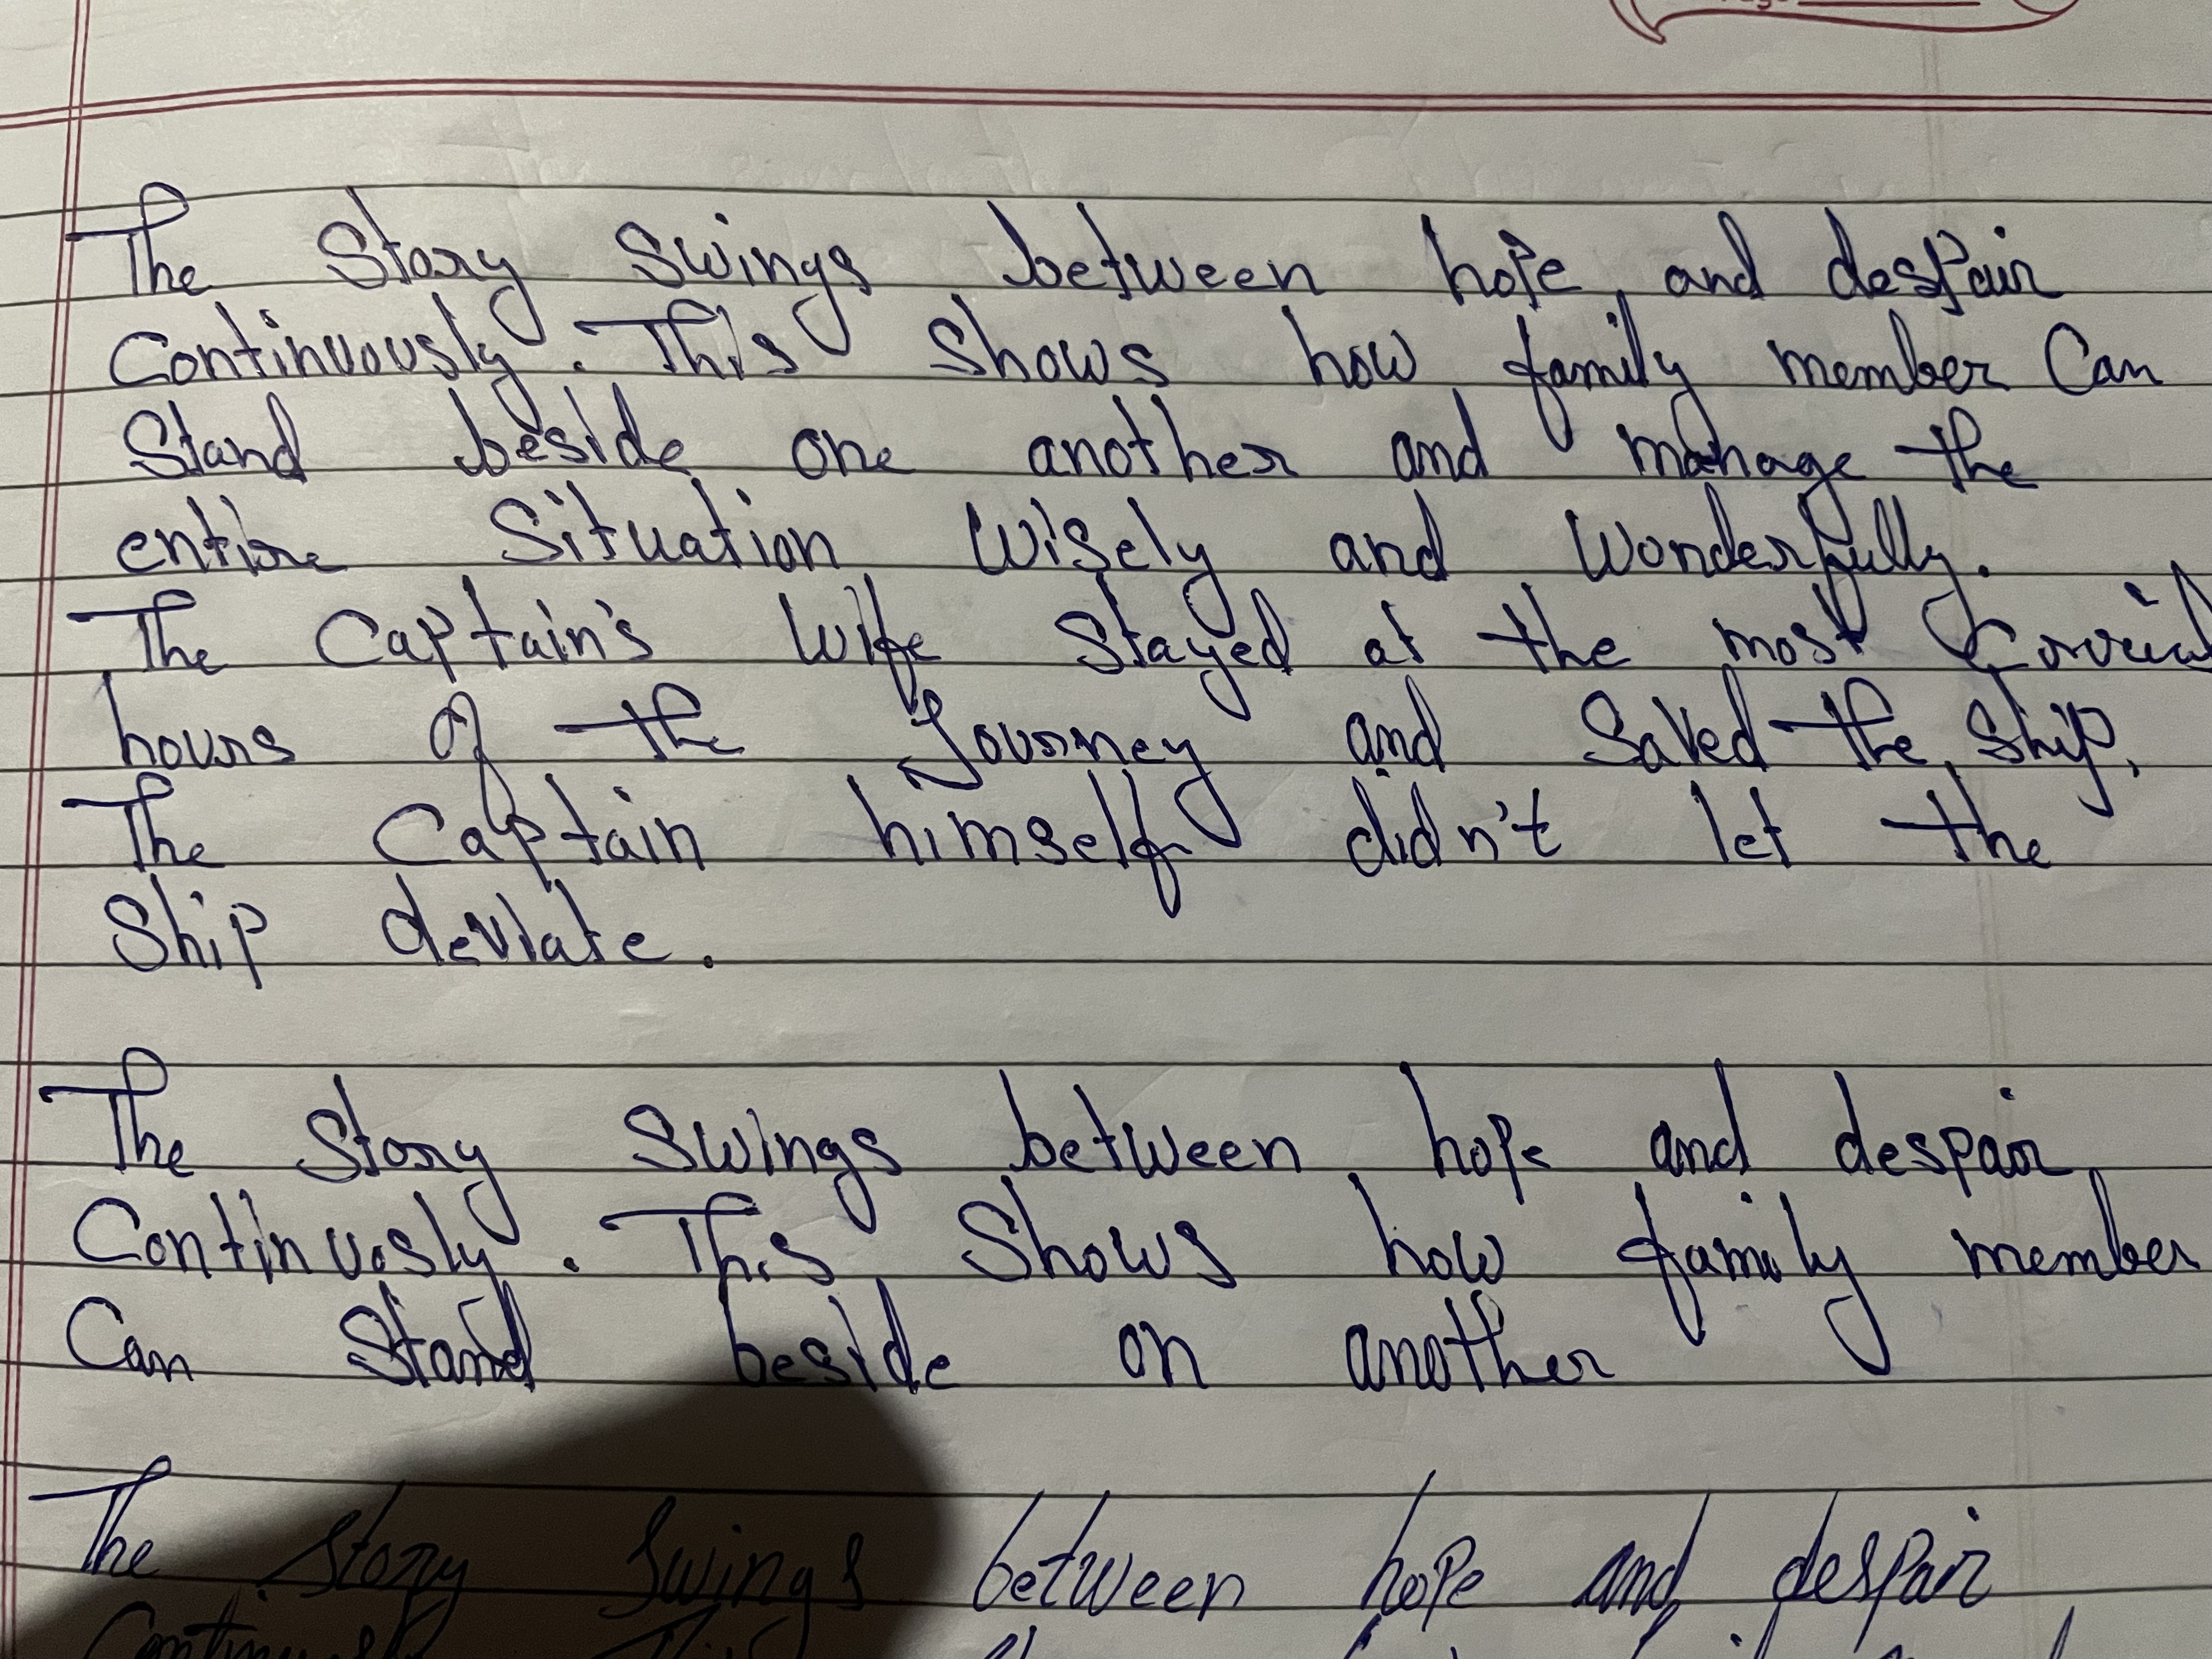 The Story Swings between hope and despair
Continuously. This Shows how family member Can
Stand beside one another and manage the
entire Situation Wisely and Wonderfully.
The Captain's Wife Stayed at the most
hours of the Journey and Saved the Ship.
The Captain himself didn't let the
Ship deviate.
The Story Swings between hope and despair
Continuosly. This Shows how family member
Can Stand beside on another
The Story Swings between hope and despair